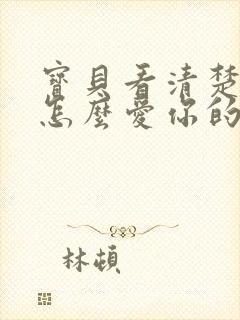 寶貝看清楚
怎麼愛你的
林頓